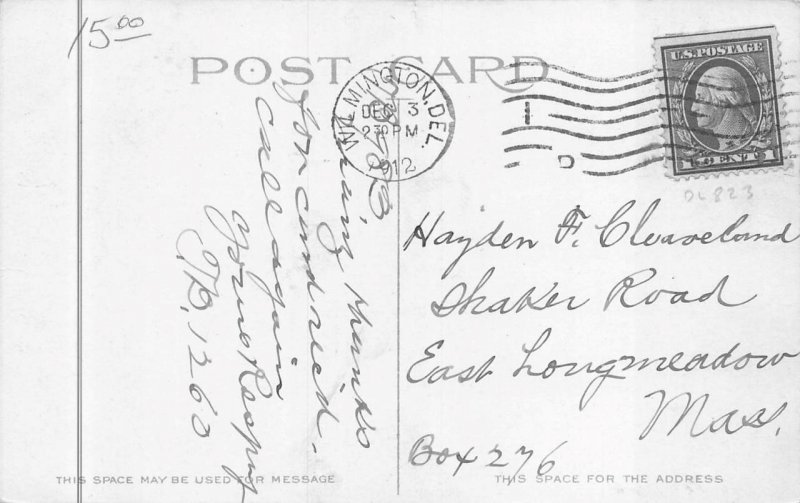 15.00
POST CARD
WILMINGTON, DEL.
DEC 3
2 30 PM
1912
U.S. POSTAGE
1 CENT 1
DL823
Many thanks
for card rec'd.
Call again
Yours Respy
1260
Hayden F. Cleaveland
Shaker Road
East Longmeadow
Mass.
Box 276
THIS SPACE MAY BE USED FOR MESSAGE
THIS SPACE FOR THE ADDRESS